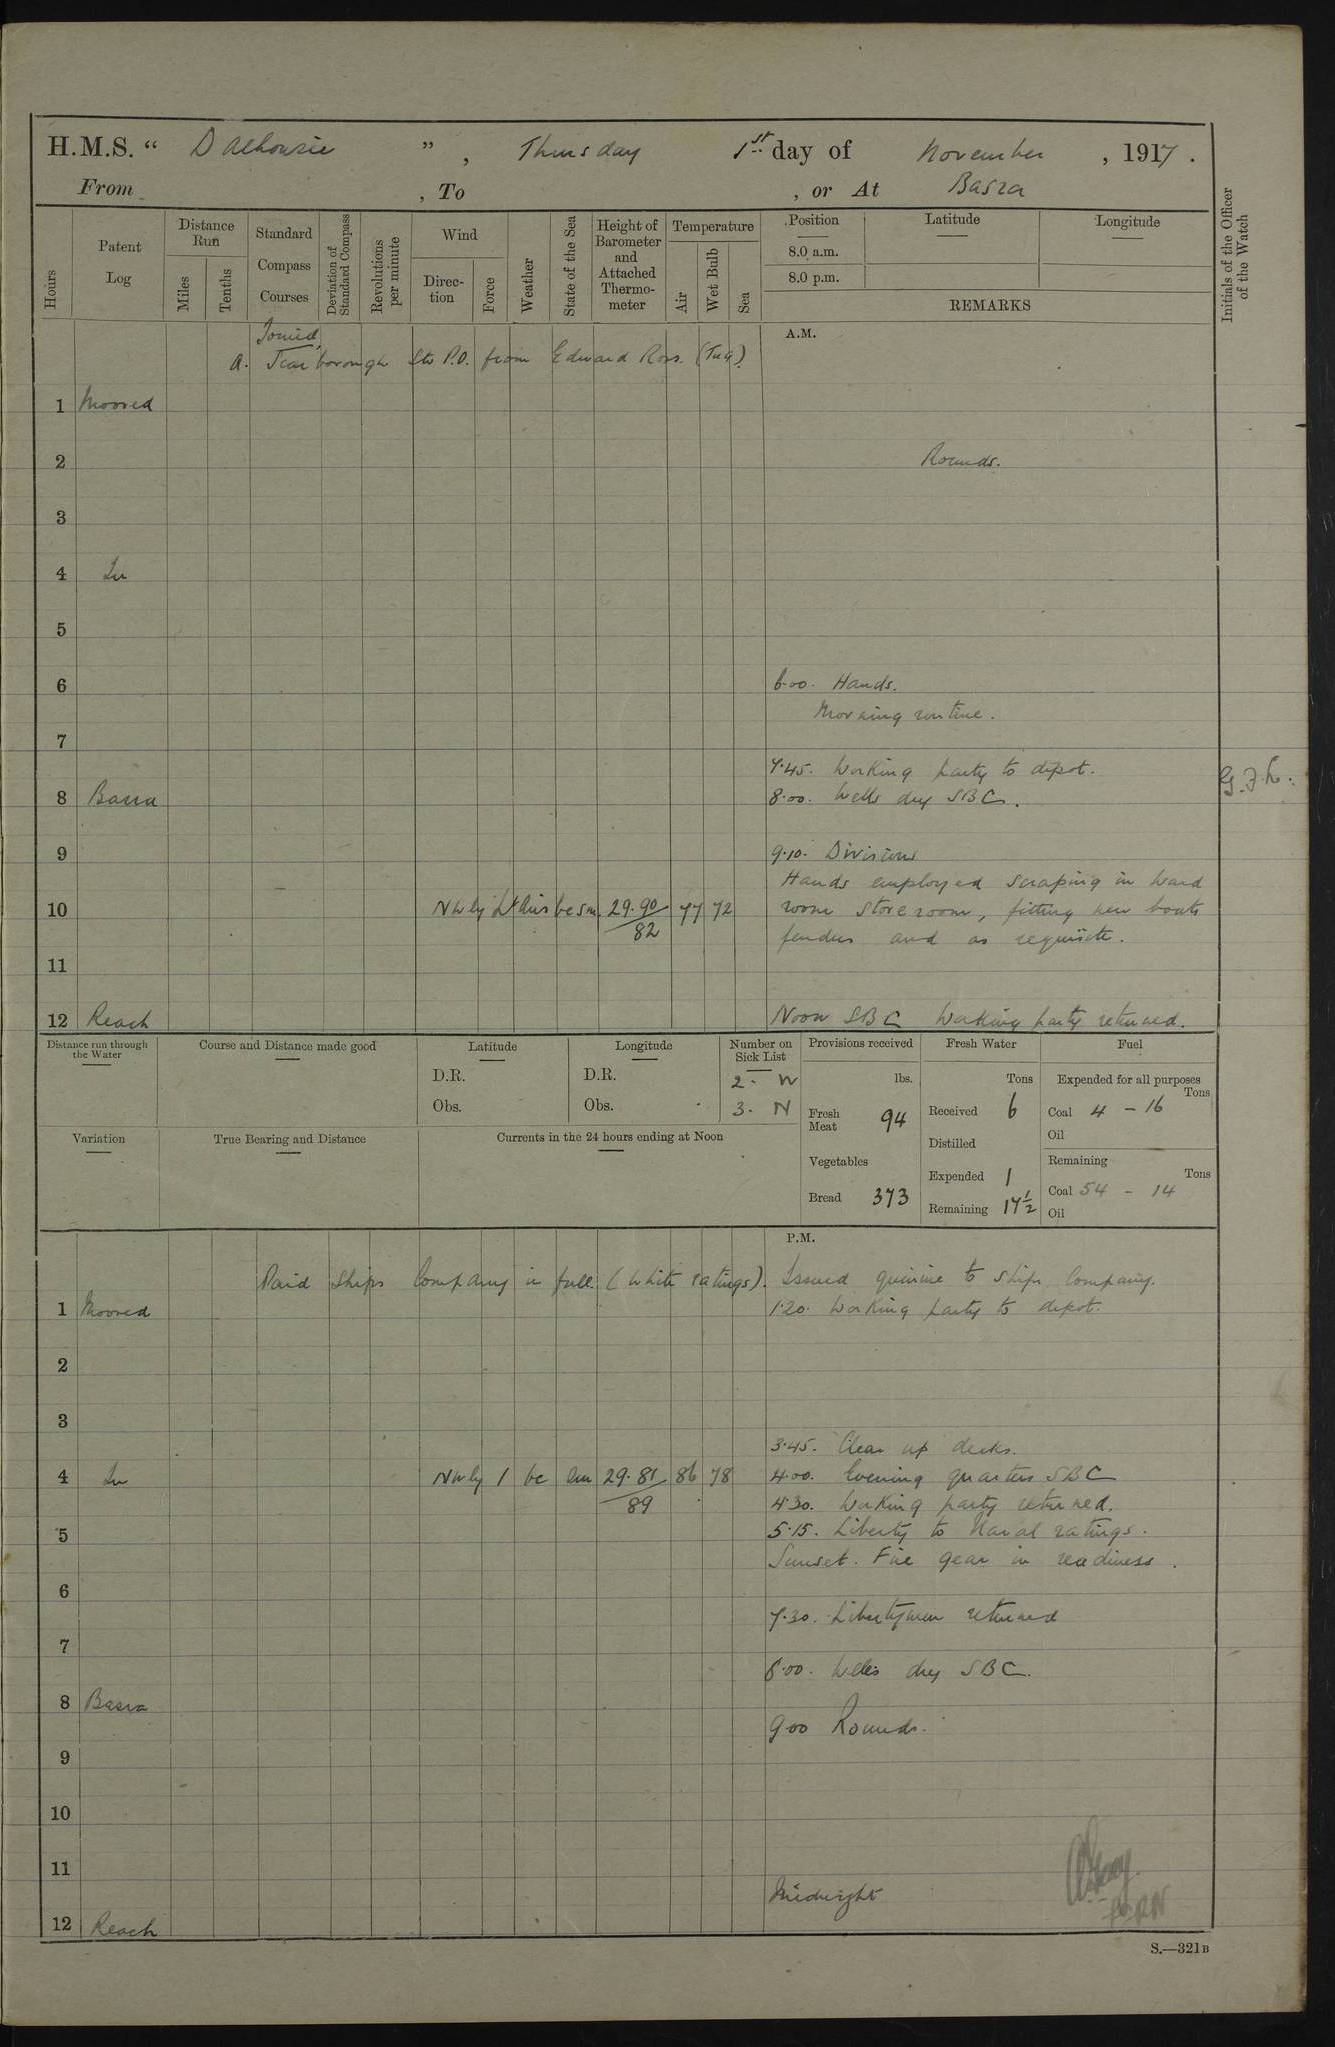 H.M.S. “ Dalhousie ” , Thursday 1st day of November , 1917 .
From , To , or At Basra
Hours
Patent Log
Distance Run
Miles
Tenths
Standard Compass Courses
Deviation of Standard Compass
Revolutions per minute
Wind
Direction
Force
Weather
State of the Sea
Height of Barometer and Attached Thermometer
Temperature
Air
Wet Bulb
Sea
Position
Latitude
Longitude
8.0 a.m.
8.0 p.m.
REMARKS
Initials of the Officer of the Watch
A.M.
Joined
A. Scarborough Sto P.O. from Edward Ross. (Tug)
1 Moored
2 Rounds.
3
4 In
5
6 6.00. Hands.
Morning routine.
7
7.45. Working party to depot.
8 Basra 8.00. Wells dry SBC.
9 9.10. Divisions
Hands employed scraping in ward
10 NWly bc sm 29.90/82 77 72 room storeroom, fitting new boats
fenders and as requisite.
11
12 Reach Noon SBC Working party returned.
Distance run through the Water
Course and Distance made good
Latitude
D.R.
Obs.
Longitude
D.R.
Obs.
Number on Sick List
2. W
3. N
Provisions received
lbs.
Fresh Meat 94
Vegetables
Bread 373
Fresh Water
Tons
Received 6
Distilled
Expended 1
Remaining 17½
Fuel
Expended for all purposes
Tons
Coal 4 - 16
Oil
Remaining
Tons
Coal 54 - 14
Oil
Variation
True Bearing and Distance
Currents in the 24 hours ending at Noon
P.M.
Paid Ships Company in full (White ratings). Issued quinine to ships Company.
1 Moored 1.20. Working party to depot.
2
3
3.45. Clear up decks.
4 In NWly 1 bc sm 29.81/89 86 78 4.00. Evening quarters SBC
4.30. Working party returned.
5 5.15. Liberty to Naval ratings.
Sunset. Fire gear in readiness.
6
7.30. Libertymen returned
7
8.00. Wells dry SBC.
8 Basra
9.00 Rounds.
9
10
11
Midnight
12 Reach
S.—321B